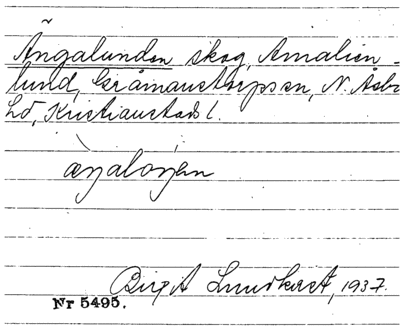 Ängalunden skog, Amalien-
lund, Gråmanstorps sn, N. Åsbo
hd, Kristianstads l.
Birgit Lundkvist, 1937.
Nr 5495.